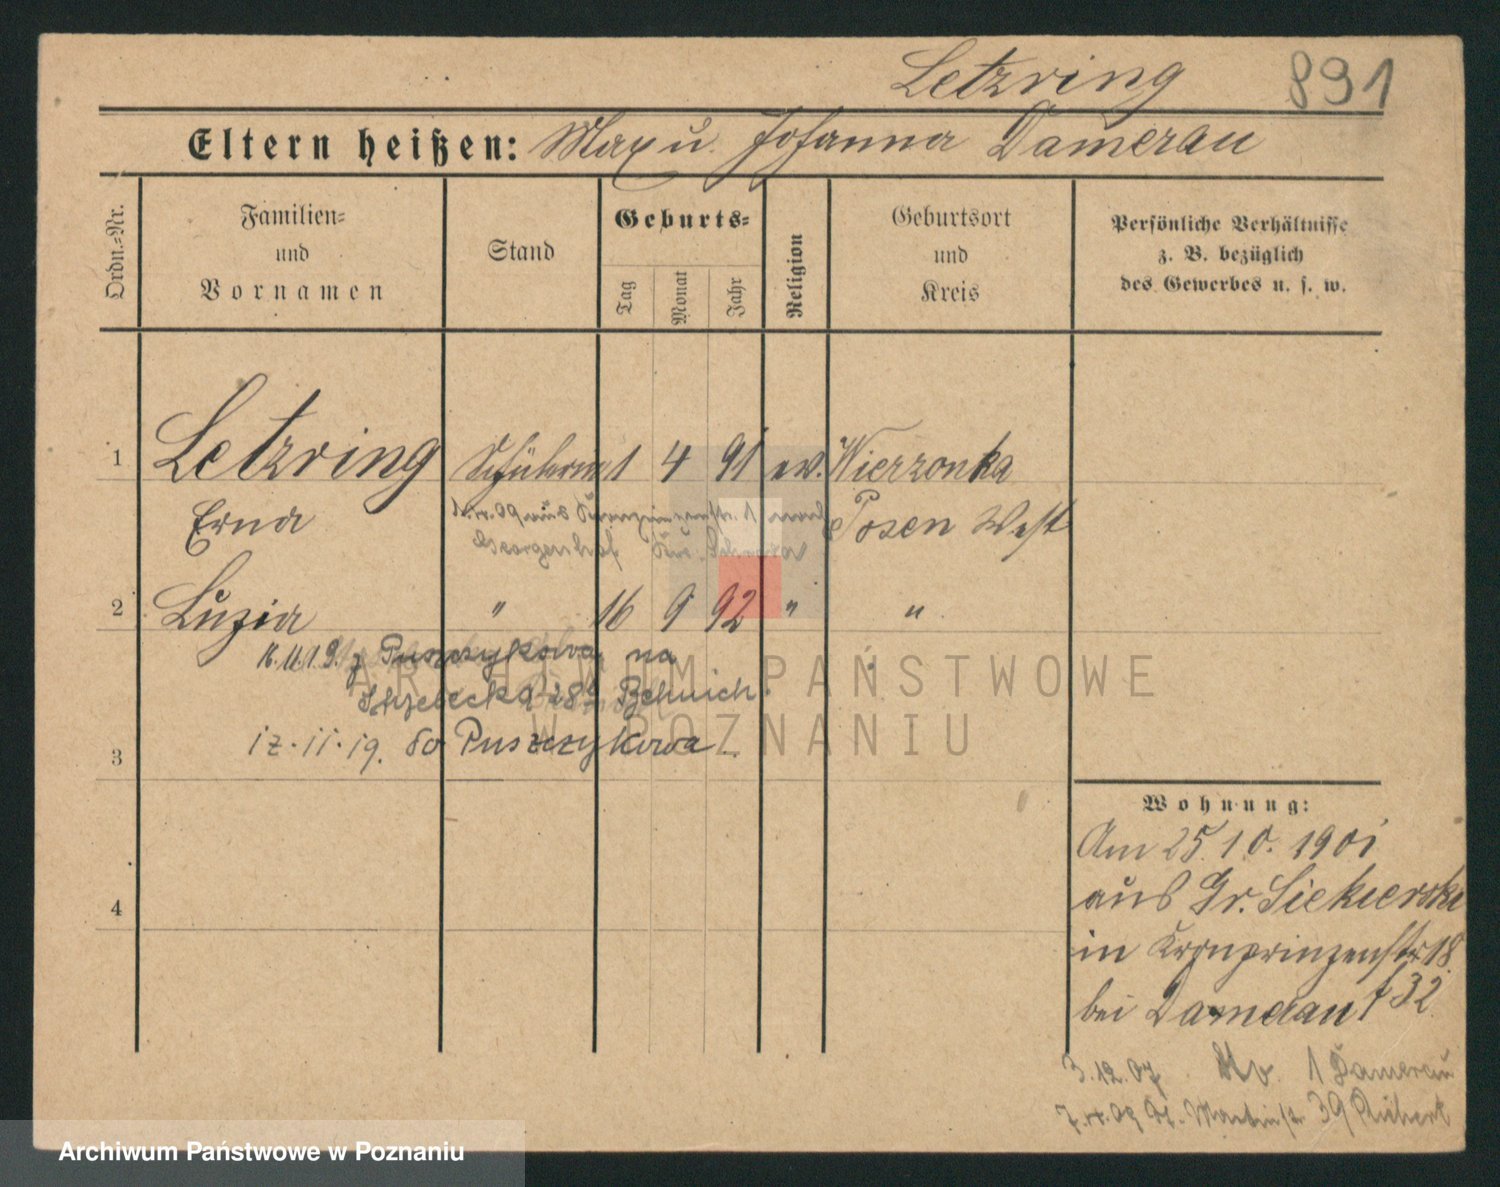 Letzring 891
Eltern heißen: Max u. Johanna Damerau
Ordn.-Nr.
Familien-
und
Vornamen
Stand
Geburts-
Tag
Monat
Jahr
Religion
Geburtsort
und
Kreis
Persönliche Verhältnisse
z. B. bezüglich
des Gewerbes u. s. w.
1 Letzring Schülerin 1 4 91 ev. Wierzonka
Erna Posen West
09 aus 1 nach
Georgenhof
2 Luzia " 16 9 92 " "
16.11.19. z Puszczykowa na
28
12.11.19. do Puszczykowa
3
4
Wohnung:
Am 25.10.1901
aus Gr. Siekierki
in Kronprinzenstr 18
bei Damerau f 32
3.12.07 1 Damerau
09 Martinstr 39
ARCHIWUM PAŃSTWOWE
W POZNANIU
Archiwum Państwowe w Poznaniu